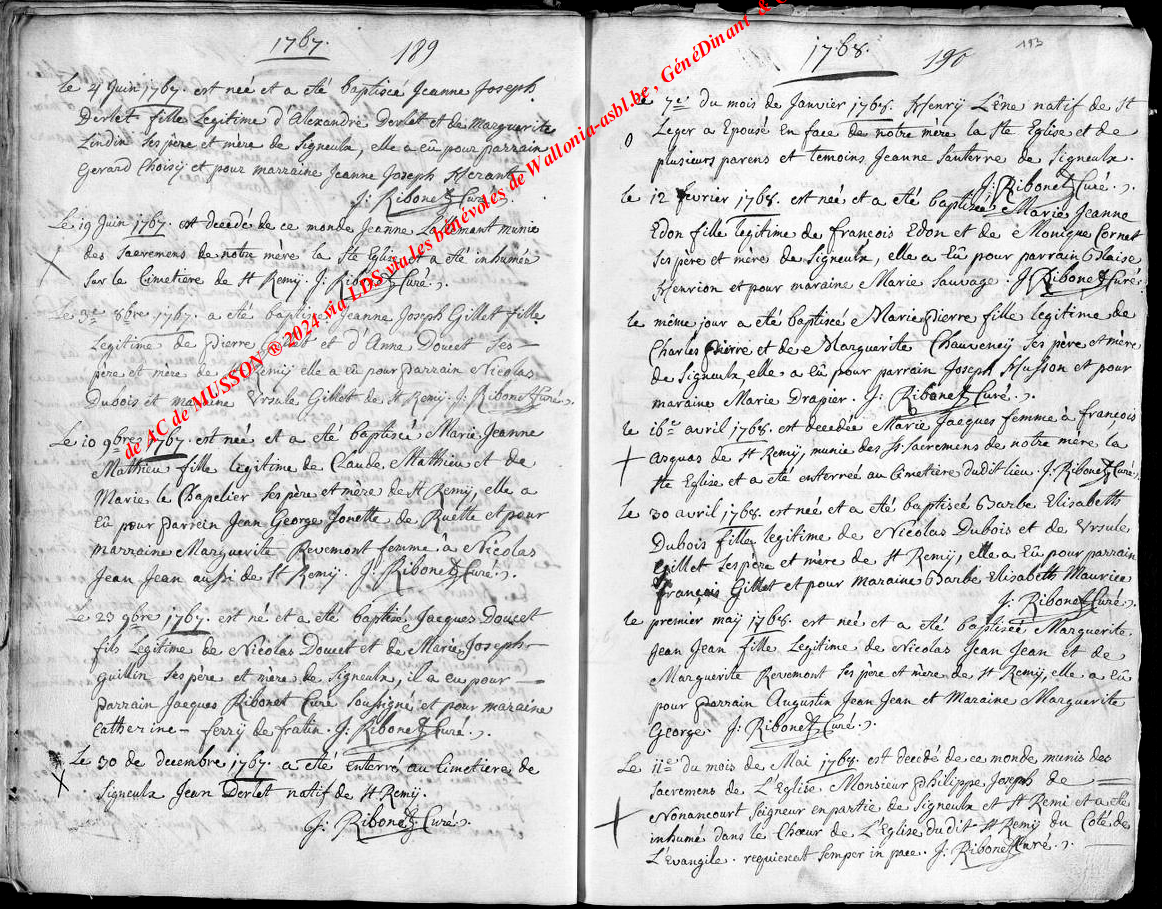 1767. 189
Le 4 Juin 1767. est née et a été baptisée Jeanne Joseph
Derlet fille Legitime d'Alexandre Derlet et de Marguerite
Lindin ses père et mère de Signeulx, elle a eû pour parrain
Gerard Choisÿ et pour marraine Jeanne Joseph
J: Ribonet Curé.
Le 19 Juin 1767. est decedée de ce monde Jeanne Lallemant munie
des sacremens de notre mère la Ste Eglise et a été inhumée
sur le Cimetiere de St Remÿ. J: Ribonet Curé.
Le 3e 8bre 1767. a été baptisée Jeanne Joseph Gillet fille
Legitime de Pierre et d'Anne Doucet ses
père et mère de Remÿ elle a eû pour Parrain Nicolas
Dubois et maraine Ursule Gillet de St Remÿ. J: Ribonet Curé.
Le 10 9bre 1767. est née et a été baptiseé Marie Jeanne
Mathieu fille legitime de Claude Mathieu et de
Marie le Chapelier ses père et mère de St Remÿ, elle a
Eû pour Parrein Jean George Jonette de Ruette et pour
marraine Marguerite Revemont femme à Nicolas
Jean Jean aussi de St Remÿ. J: Ribonet Curé.
Le 23 9bre 1767. est né et a été baptisé Jacques Doucet
fils Legitime de Nicolas Doucet et de Marie Joseph
Guillin ses père et mère de Signeulx, il a eu pour
Parrain Jacques Ribonet Curé soussigné et pour maraine
Catherine ferry de fratin. J: Ribonet Curé.
Le 30 de decembre 1767. a été enterré au Cimetiere de
Signeulx Jean Derlet natif de St Remÿ.
J: Ribonet Curé.
1768. 190 193
Le 7e du mois de Janvier 1768. Henrÿ Lêne natif de St
Leger a Epousé en face de notre mère la Ste Eglise et de
plusieurs parens et temoins Jeanne Santerre de Signeulx.
J: Ribonet Curé.
Le 12 fevrier 1768. est née et a été baptisée Marie Jeanne
Edon fille legitime de françois Edon et de Monique Cornet
ses père et mère de Signeulx, elle a eû pour parrain Blaise
Henrion et pour maraine Marie Sauvage. J: Ribonet Curé
Le même jour a été baptiscé Marie Pierre fille legitime de
Charles Pierre et de Marguerite Chauvenciÿ ses père et mère
de Signeulx, elle a eû pour parrain Joseph Husson et pour
maraine Marie Drapier. J: Ribonet Curé.
Le 16e avril 1768. est decedée Marie Jacques femme à françois
arquas de St Remÿ, munie des Sts sacremens de notre mère la
Ste Eglise et a été enterreé au Cimetière dudit lieu. J: Ribonet Curé
Le 30 avril 1768. est née et a été baptisée Barbe Elisabeth
Dubois fille legitime de Nicolas Dubois et de Ursule
Gillet ses père et mère de St Remÿ, elle a eû pour parrain
françois Gillet et pour maraine Barbe Elisabeth Maurice
J: Ribonet Curé.
Le premier maÿ 1768. est née et a été baptiseé Marguerite
Jean Jean fille Legitime de Nicolas Jean Jean et de
Marguerite Revemont ses père et mère de St Remÿ, elle a eû
pour Parrain Augustin Jean Jean et Maraine Marguerite
George. J: Ribonet Curé.
Le 11e du mois de Mai 1768. est decedé de ce monde munis des
sacremens de L'Eglise Monsieur Philippe Joseph de
Nonancourt Seigneur en partie de Signeulx et St Remi et a été
inhumé dans le Chœur de L'Eglise dudit St Remÿ du Coté de
L'Evangile. requiescat semper in pace. J: Ribonet Curé.
de AC de MUSSON ® 2024 via LDS via les bénévoles de Wallonia-asbl.be , GénéDinant &